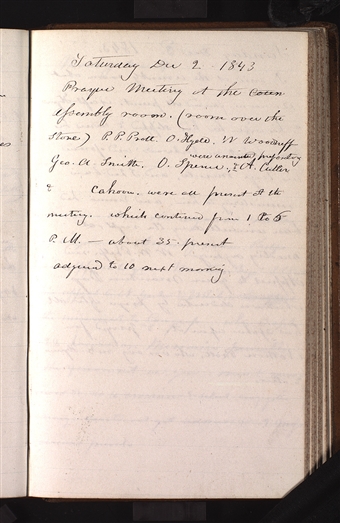 Saturday Dec 2. 1843
Prayer Meeting at the
assembly room. (room over the
store) P. P. Pratt. O. Hyde. W. Woodruff
Geo. A. Smith. O. Spencer, were annointed, preparatory
&c
Cahoon. were all present at the
meeting. which continued from 1 to 5
P. M. — about 35. present
adjournd to 10 next morning